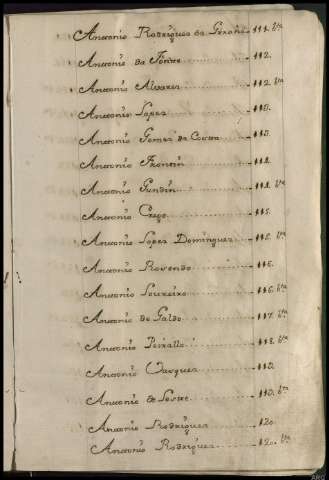 Antonio Rodrigues da 111. bta
Antonio da Fonte 112.
Antonio Alvares 112. bta
Antonio Lopes 113.
Antonio Gomes da Costa 113.
Antonio 114.
Antonio Gundin 114. bta
Antonio Crego 115.
Antonio Lopes Dominguez 115. bta
Antonio Rovendo 116.
Antonio Loureiro 116. bta
Antonio do Galdo 117. bta
Antonio Peixallo 118. bta
Antonio Vasques 119.
Antonio de 119. bta
Antonio Rodrigues 120.
Antonio Rodrigues 120. bta